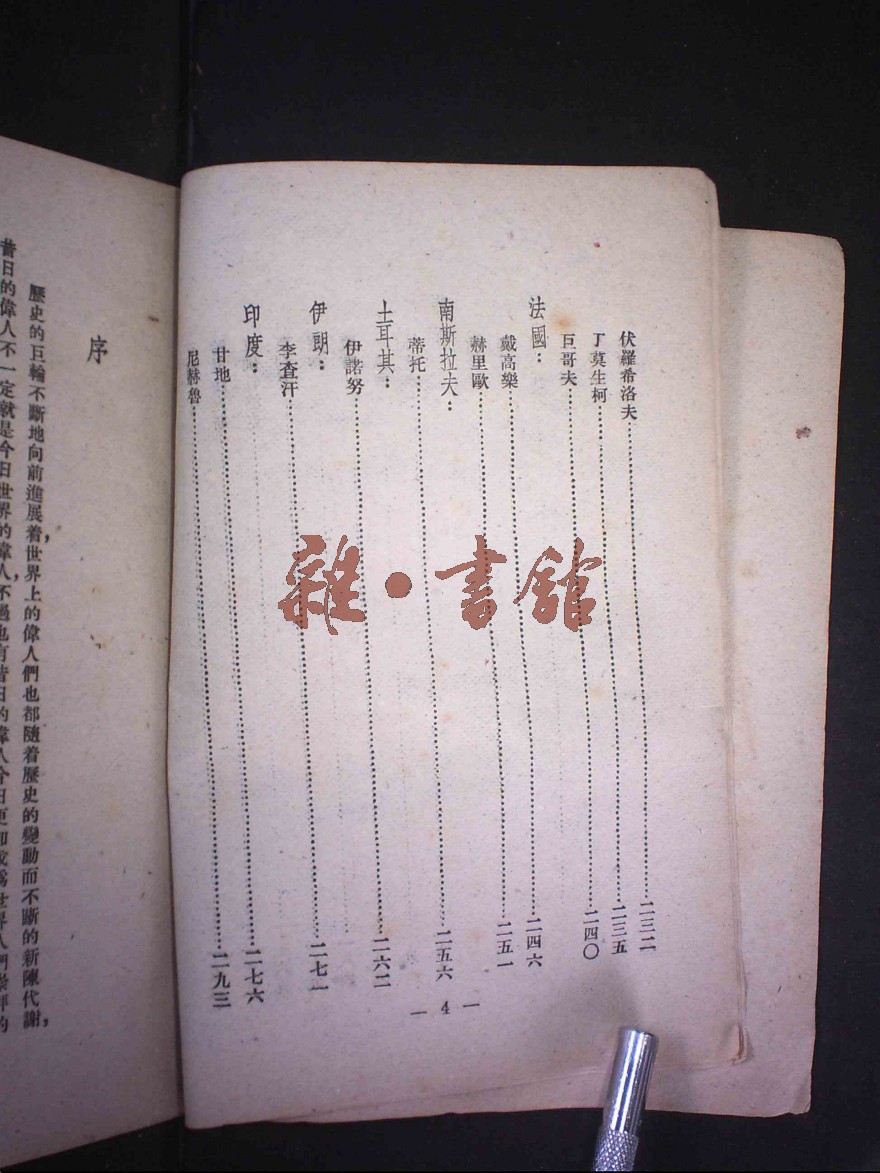 伏羅希洛夫……二三二
丁莫生柯……二三五
巨哥夫……二四〇
法國：
戴高樂……二四六
赫里歐……二五一
南斯拉夫：
蒂托……二五六
土耳其：
伊諾努……二六二
伊朗：
李查汗……二七一
印度：
甘地……二七六
尼赫魯……二九三
— 4 —
序
歷史的巨輪不斷地向前進展着，世界上的偉人們也都隨着歷史的變動而不斷的新陳代謝，
昔日的偉人不一定就是今日世界的偉人，不過也有昔日的偉人今日更
雜·書館